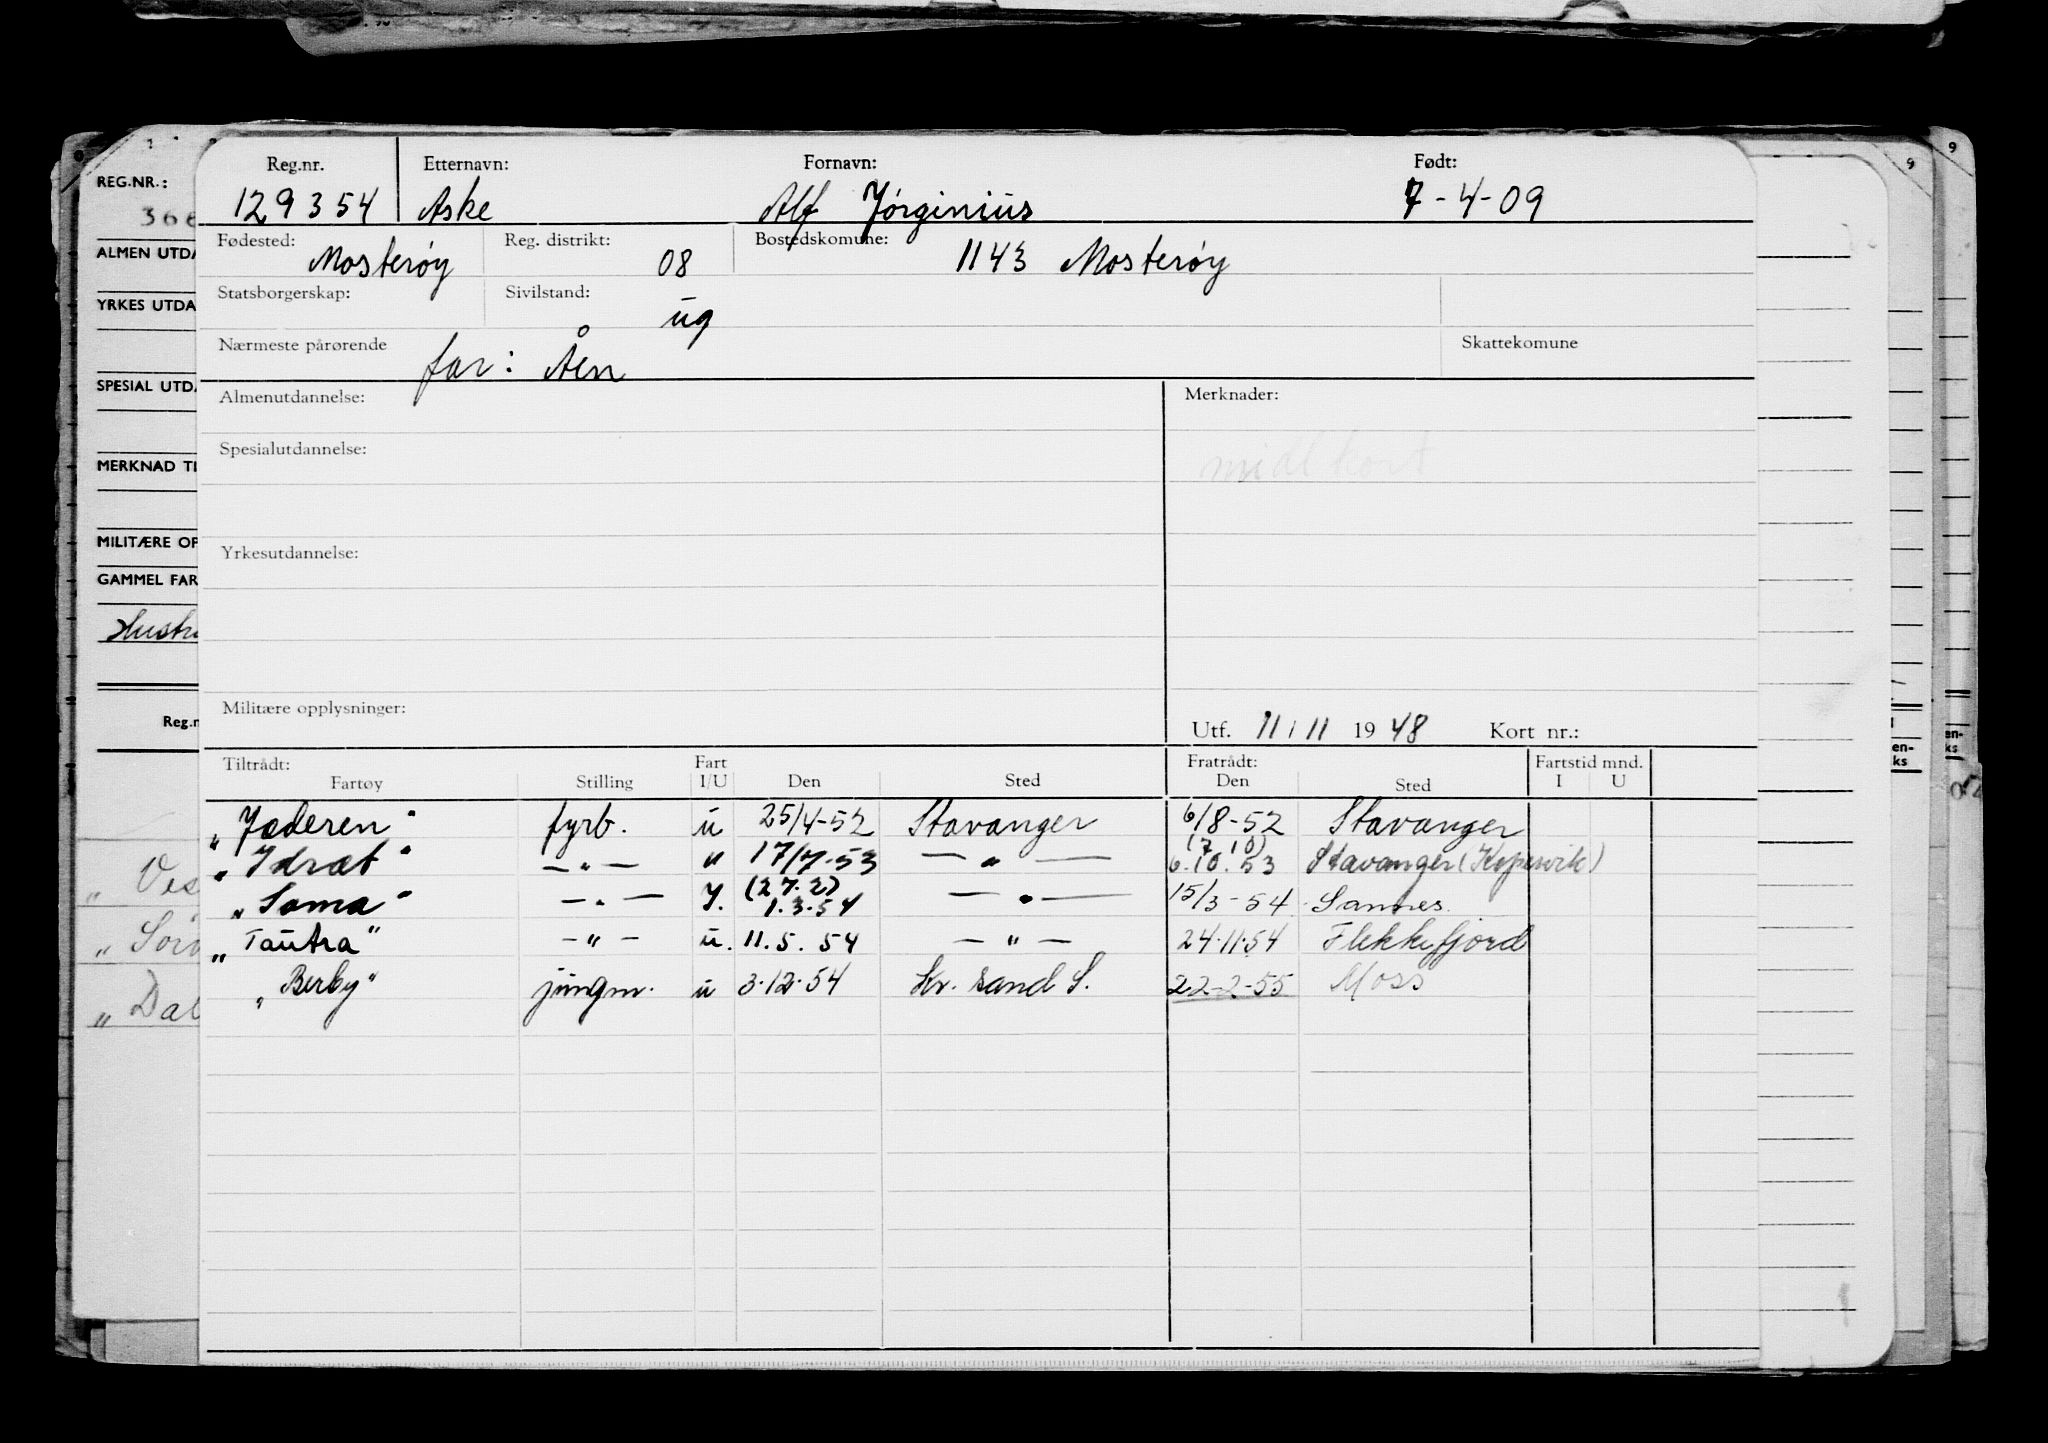 9
9
REG.NR.:
ALMEN UTDA
YRKES UTDA
SPESIAL UTDA
MERKNAD TI
MILITÆRE OP
GAMMEL FAR
Reg.n
„ Ves
„ Dal
en-
ks
en-
ks
Reg.nr. Etternavn: Fornavn: Født:
129354 Aske Alf Jørginius 7-4-09
Fødested: Mosterøy Reg. distrikt: 08 Bostedskomune: 1143 Mosterøy
Statsborgerskap: Sivilstand: ug
Nærmeste pårørende far: Åen Skattekomune
Almenutdannelse: Merknader:
Spesialutdannelse: midl kort
Yrkesutdannelse:
Militære opplysninger: Utf. 11/11 1948 Kort nr.:
Tiltrådt: Fart Fratrådt: Fartstid mnd.
Fartøy Stilling I/U Den Sted Den Sted I U
„Jæderen" fyrb. u 25/4-52 Stavanger 6/8-52 Stavanger
(7 10)
„Idræt" —„— " 17/7-53 —„— 6.10.53 Stavanger (Kopervik)
(27.2)
„Soma" —„— I. 1.3.54 —„— 15/3-54 Sannes.
„Tautra" —"— u. 11.5.54 —"— 24.11.54 Flekkefjord
„Berby" jungm. u 3.12.54 Kr. sand S. 22-2-55 Moss